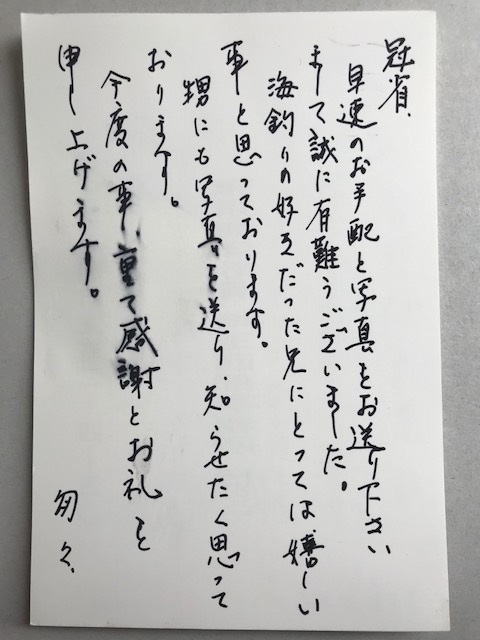 冠省、
早速のお手配と写真をお送り下さい
まして誠に有難うございました。
海釣りの好きだった兄にとっては嬉しい
事と思っております。
甥にも写真を送り、知らせたく思って
おります。
今度の事、重て感謝とお礼を
申し上げます。
匆々、